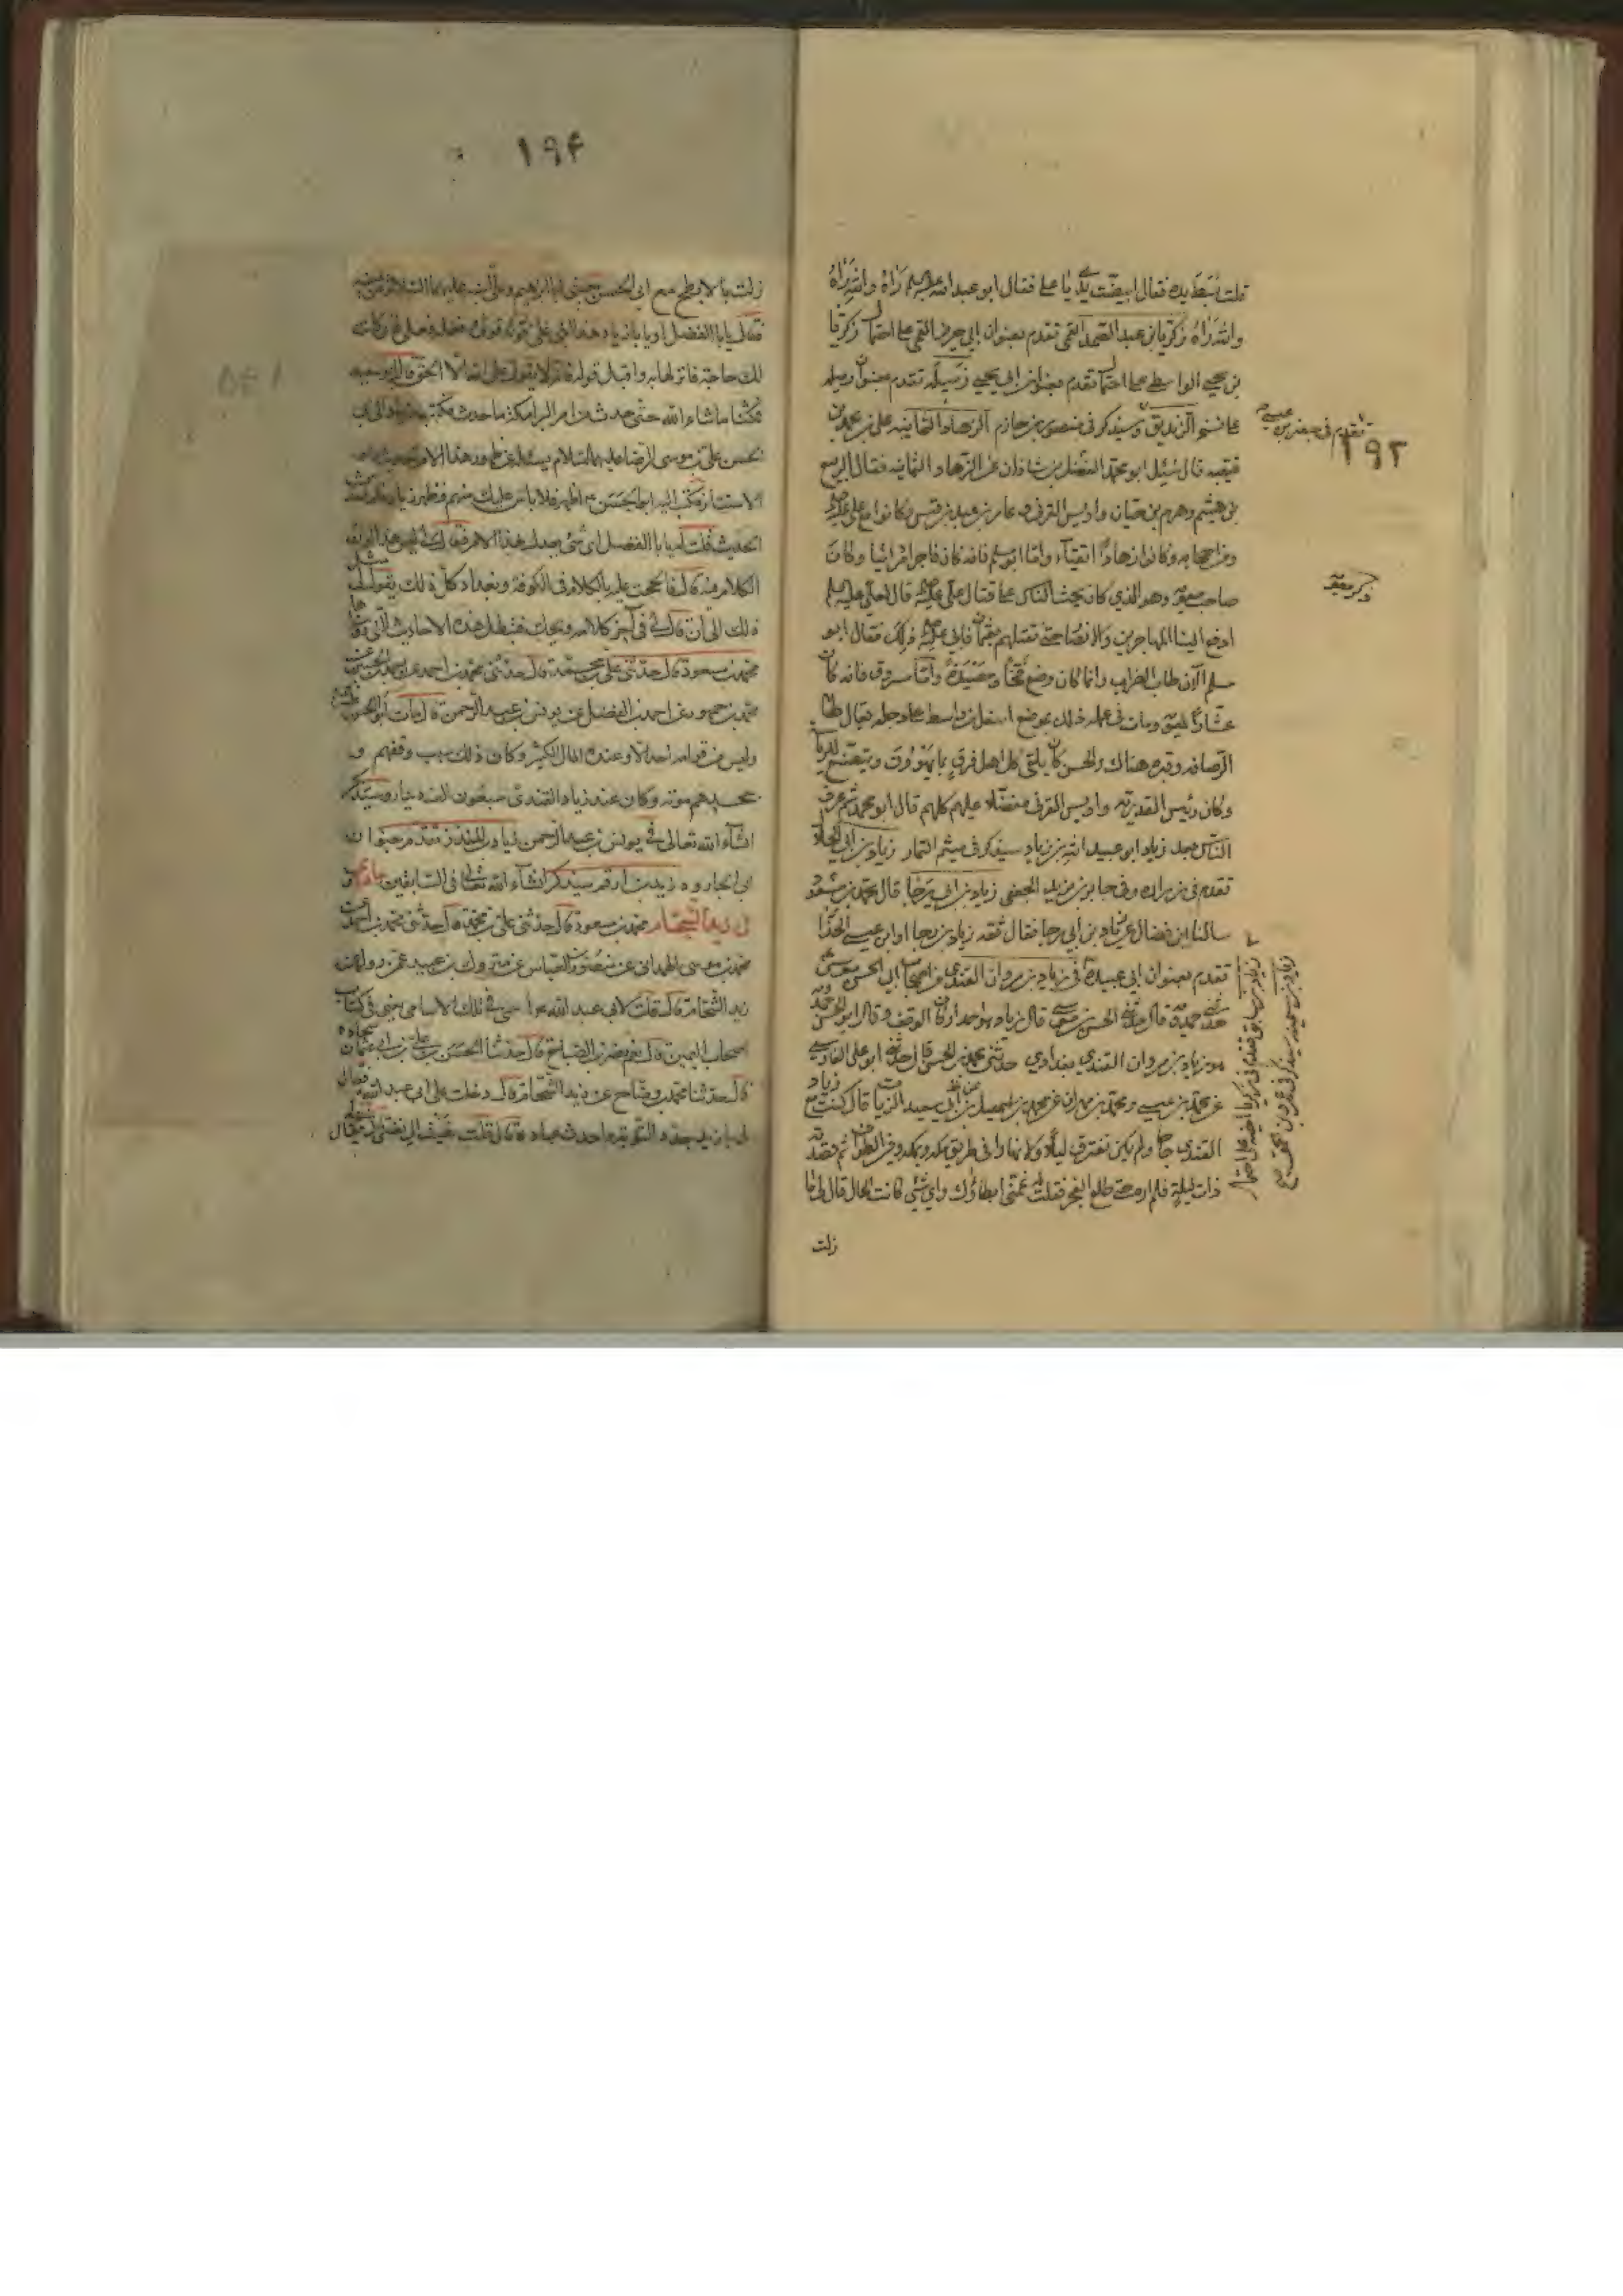 قلت نعم فقال ابيضّت يا على فقال ابو عبد الله عليه السلم رَاهُ والله رَاهُ
والله رَاهُ زكريا بن عبد الصمد القمى تقدم بعنوان ابى جرير القمى على احتمال زكريا
بن يحيى الواسطى على احتمال تقدم بعنوان ابى يحيى زميله تقدم بعنوان رميله
وسيذكر فى منصور بن حازم الزهاد الثمانيه على بن محمد بن
قتيبه قال سُئِل ابو محمد الفضل بن شاذان عن الزهاد الثمانيه فقال الربيع
بن هيثم وهرم بن حيان واويس القرنى وعامر بن عبد قيس وكانوا مع على عليه السلم
ومن اصحابه وكانوا زهادا اتقياء واما ابو مسلم فانه كان فاجرا مرائيا وكان
صاحب معوية وهو الذي كان يحث الناس على قتال على عليه السلم قال لعلى عليه السلم
ادفع الينا المهاجرين والانصار حتى نقتلهم بعثمان فابى على عليه السلم ذلك فقال ابو
مسلم الآن طاب الضراب وانما كان وضع فخا ومصيدة واما مسروق فانه كان
عشارا لمعوية ومات فى عمله ذلك بموضع اسفل من واسط على دجله يقال لها
الرصافه وقبره هناك والحسن كان يلقى كل اهل فرقة بما يهوون ويتصنع للرياسة
وكان رئيس القدرية واويس القرنى مفضلا عليهم كلهم قال ابو محمد ثم عرف
الناس بعد زياد ابو عبيد الله بن زياد سيذكر فى ميثم التمار زياد بن ابى الحلال
تقدم فى زراره وفى جابر بن يزيد الجعفى زياد بن ابى رجا قال محمد بن مسعود
سالنا ابن فضال عن زياد بن ابى رجا فقال ثقه زياد بن رجا او ابن عيسى الحذا
تقدم بعنوان ابى عبيدة فى زياد بن مروان القندى من اصحاب ابى الحسن موسى
حدثنى حمدويه قال حدثنى الحسن بن موسى قال زياد هو احد اركان الوقف وقال ابو الحسن حمدويه
هو زياد بن مروان القندى بغدادي حدثنى محمد بن الحسن قال حدثنى ابو على الفارسى
عن محمد بن عيسى ومحمد بن مهران عن محمد بن اسمعيل بن ابى سعيد الزيات قال كنت مع زياد
القندى حاجا ولم يكن نفترق ليلا ولا نهارا فى طريق مكه وبمكه وفى الطواف ثم قصدته
ذات ليلة فلم اره حتى طلع الفجر فقلت له غمنى ابطاؤك واى شئ كانت الحال قال لى ما
زلت
تقدم فى جعفر بن عيسى
١٩٣
ذكر معوية
١٩۴
زلت بالابطح مع ابى الحسن يعنى ابا ابراهيم وعلى ابنه عليهما السلام عن يمينه
فقال يا ابا الفضل او يا زياد هذا ابنى على قوله قولى وفعله فعلى فان كانت
لك حاجة فانزلها به واقبل قوله فانه لا يقول على الله الا الحق قال ابن ابى سعيد
فمكثنا ما شاء الله حتى حدث من امر البرامكة ما حدث فكتب زياد الى ابى
الحسن على بن موسى الرضا عليهما السلام يسئله عن ظهور هذا الامر
الاستتار فكتب اليه ابو الحسن ع اظهر فلا باس عليك منهم فظهر زياد فلما حدث
الحديث قلت له يا ابا الفضل اى شئ يعدل هذا الامر فقال لى ليس هذا اوان
الكلام فيه قال فالححت عليه بالكلام فى الكوفه وبغداد كل ذلك يقول لى مثل
ذلك الى ان قال لى فى آخر كلامه ويحك فتبطل هذه الاحاديث التى رويناها
محمد بن مسعود قال حدثنى على بن محمد قال حدثنى محمد بن احمد عن احمد بن الحسين عن
محمد بن جمهور عن احمد بن الفضل عن يونس بن عبد الرحمن قال مات ابو الحسن
وليس من قوامه احد الا وعنده المال الكثير وكان ذلك سبب وقفهم و
جحدهم موته وكان عند زياد القندى سبعون الف دينار وسيذكر
انشاء الله تعالى فى يونس بن عبد الرحمن زياد بن المنذر تقدم بعنوان
ابى الجارود زيد بن ارقم سيذكر انشاء الله تعالى فى السابقين
فى زيد الشحام محمد بن مسعود قال حدثنى على بن محمد قال حدثنى محمد بن احمد عن
محمد بن موسى الهمدانى عن منصور بن العباس عن مروك بن عبيد عمن رواه عن
زيد الشحام قال قلت لابى عبد الله ع اسمى فى تلك الاسامى يعنى فى كتاب
اصحاب اليمين قال نعم نصر بن الصباح قال حدثنا الحسن بن على بن ابى عثمان سجاده
قال حدثنا محمد بن وضاح عن زيد الشحام قال دخلت على ابى عبد الله فقال
لى يا زيد جدد التوبة واحدث عبادة قال قلت نعيت الى نفسى قال فقال